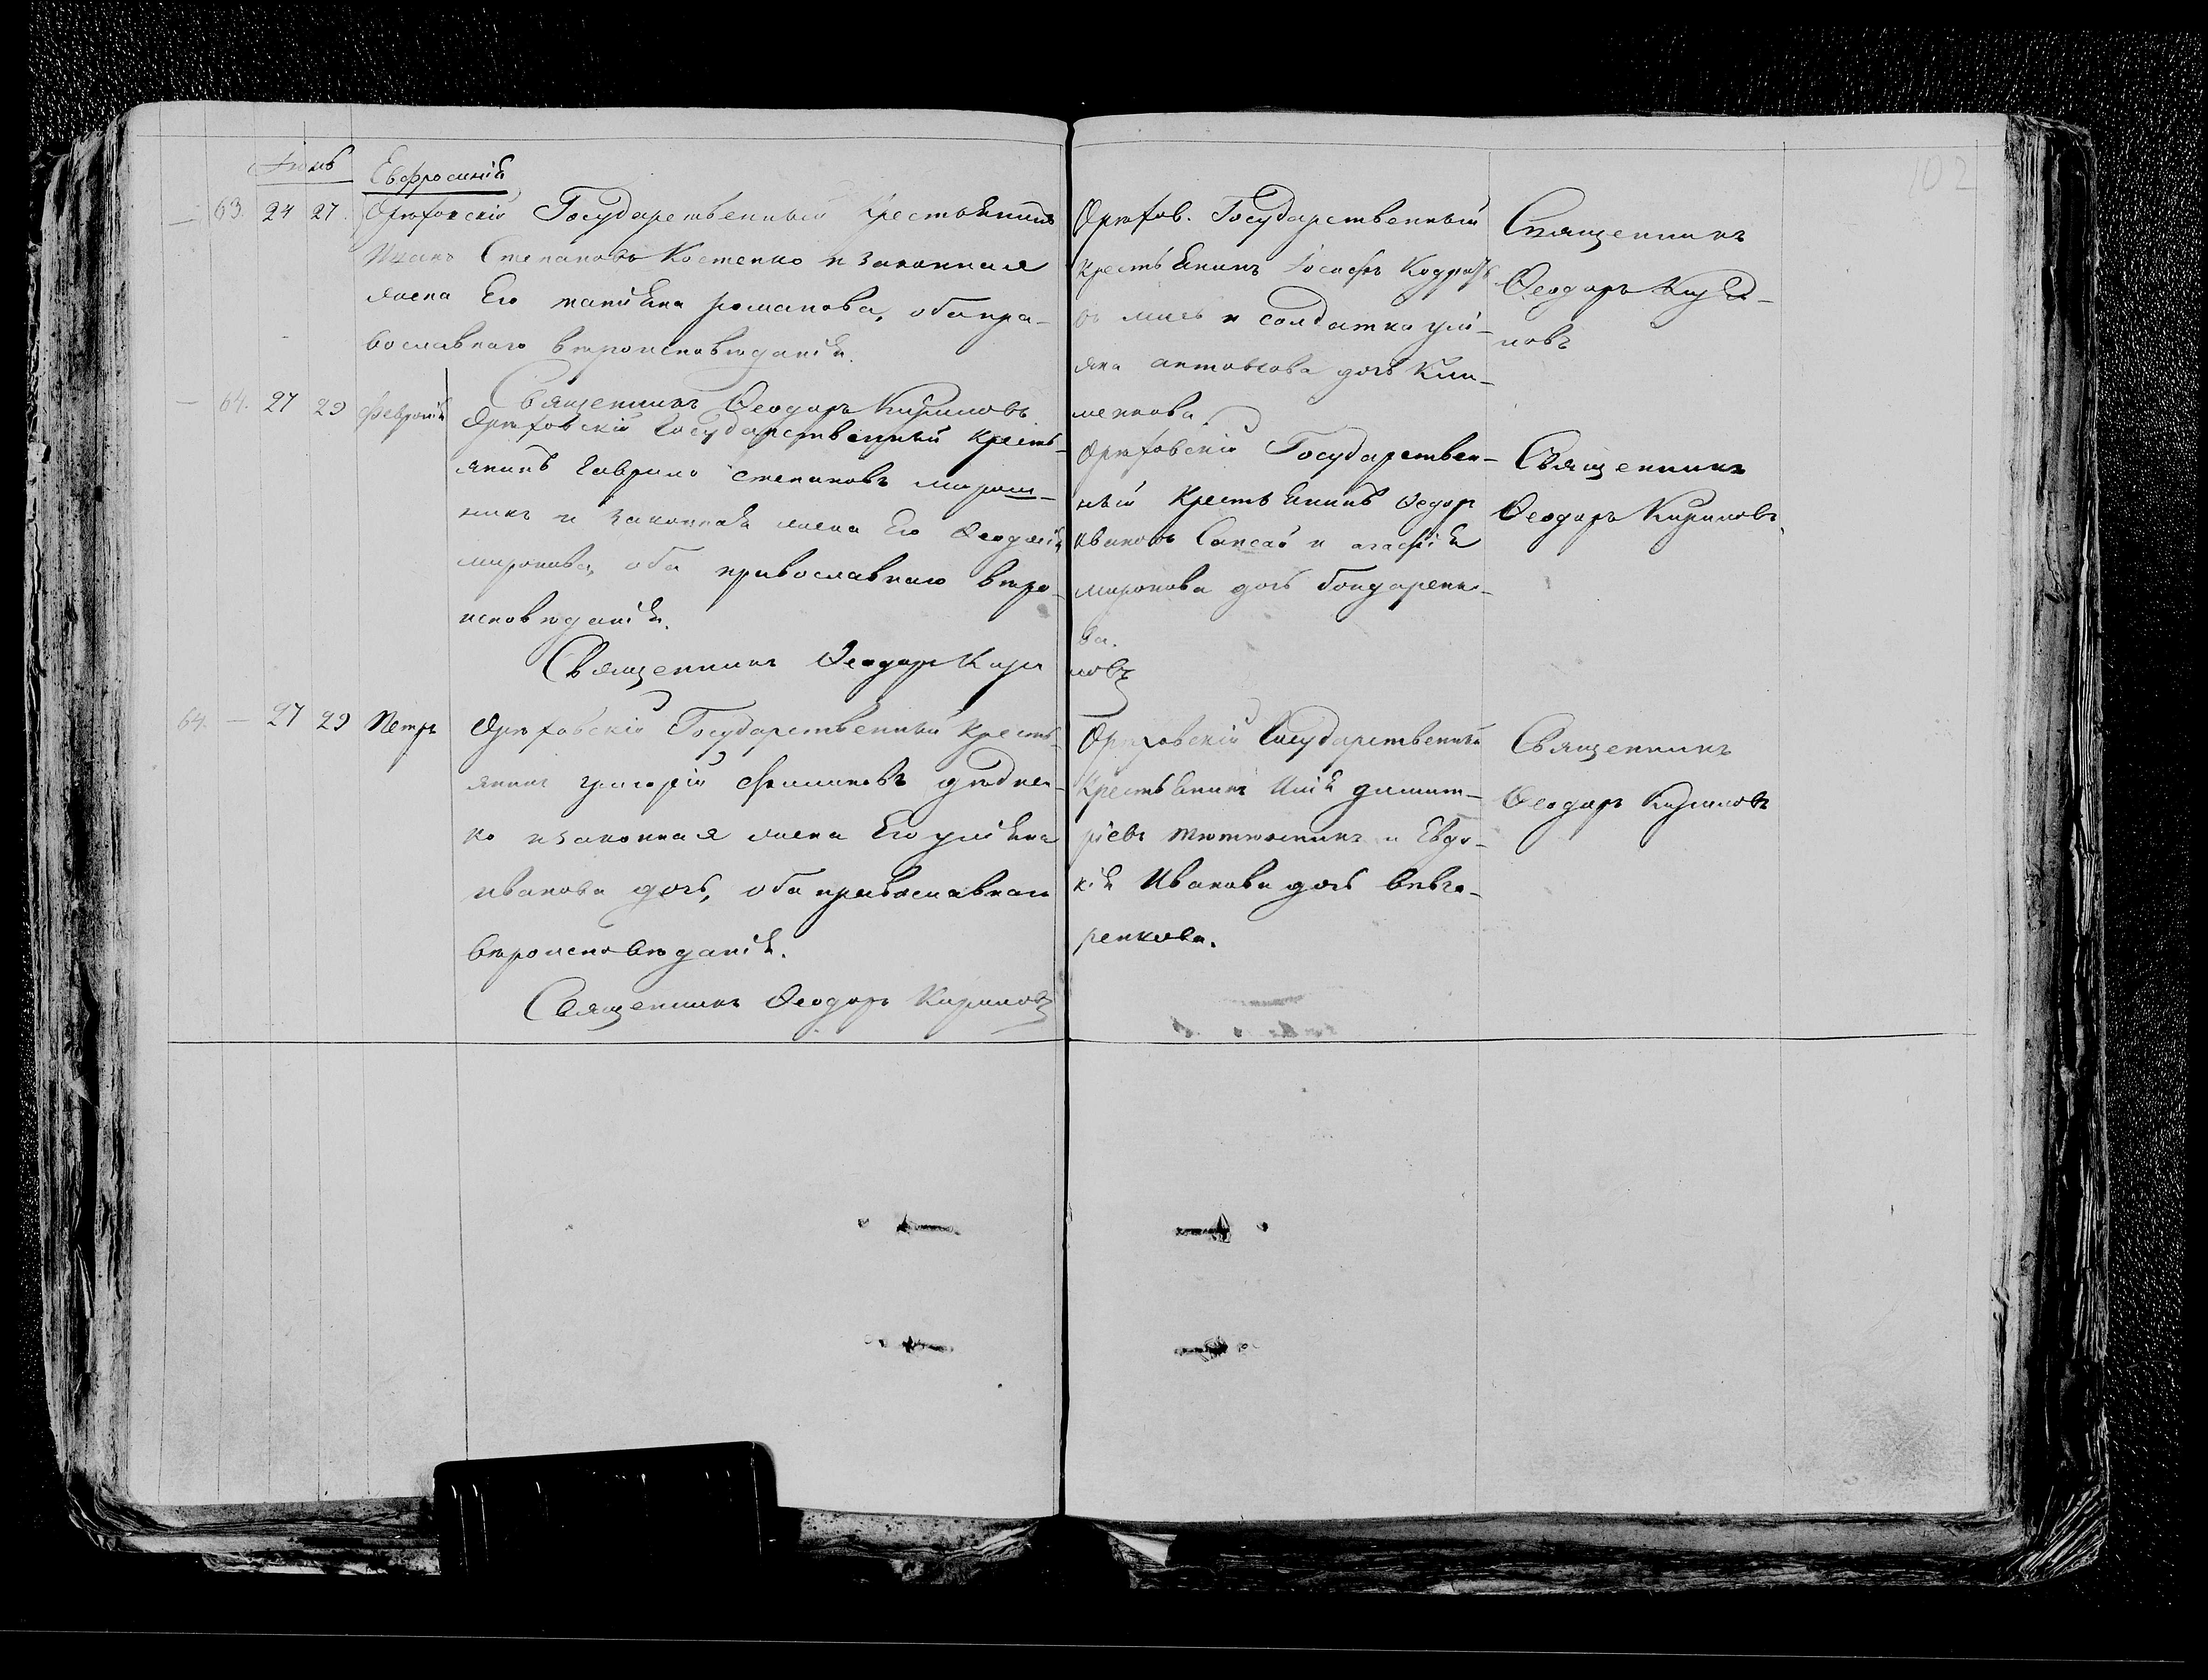 Іюнь
Евфросинія
63. 24 27. Орѣховскій Государственный крестьянинъ
Иванъ Степановъ Костенко и законная
жена Его Романова, оба пра-
вославнаго вѣроисповѣданія.
Священникъ Ѳеодоръ Кириловъ
64. 27 29 Февронія Орѣховскій Государственный кресть-
янинъ Гаврило Степановъ мирош-
никъ и законная жена Его Ѳеодосія
миронова, оба православнаго вѣро-
исповѣданія.
Священникъ Ѳеодоръ Кири
64. — 27 29 Петръ Орѣховскій Государственный кресть-
янинъ григорій дѣднен-
ко и законная жена Его уліяна
иванова дочь, оба православнаго
вѣроисповѣданія.
Священникъ Ѳеодоръ Кириловъ
102
Орѣхов. Государственный
крестьянинъ Іосифъ
и солдатка улі-
яна дочь Кли-
менкова
Орѣховскій Государствен-
ный Крестьянинъ Ѳедоръ
ивановъ и агафія
миронова дочь бондаренко-
ва.
новъ
Орѣховскій Государственный
Крестьянинъ Илія димит-
ріевъ тютюнникъ и Евдо-
кія Иванова дочь
ренкова.
Священникъ
Ѳеодоръ Кири-
новъ
Священникъ
Ѳеодоръ Кириловъ
Священникъ
Ѳеодоръ Кириловъ